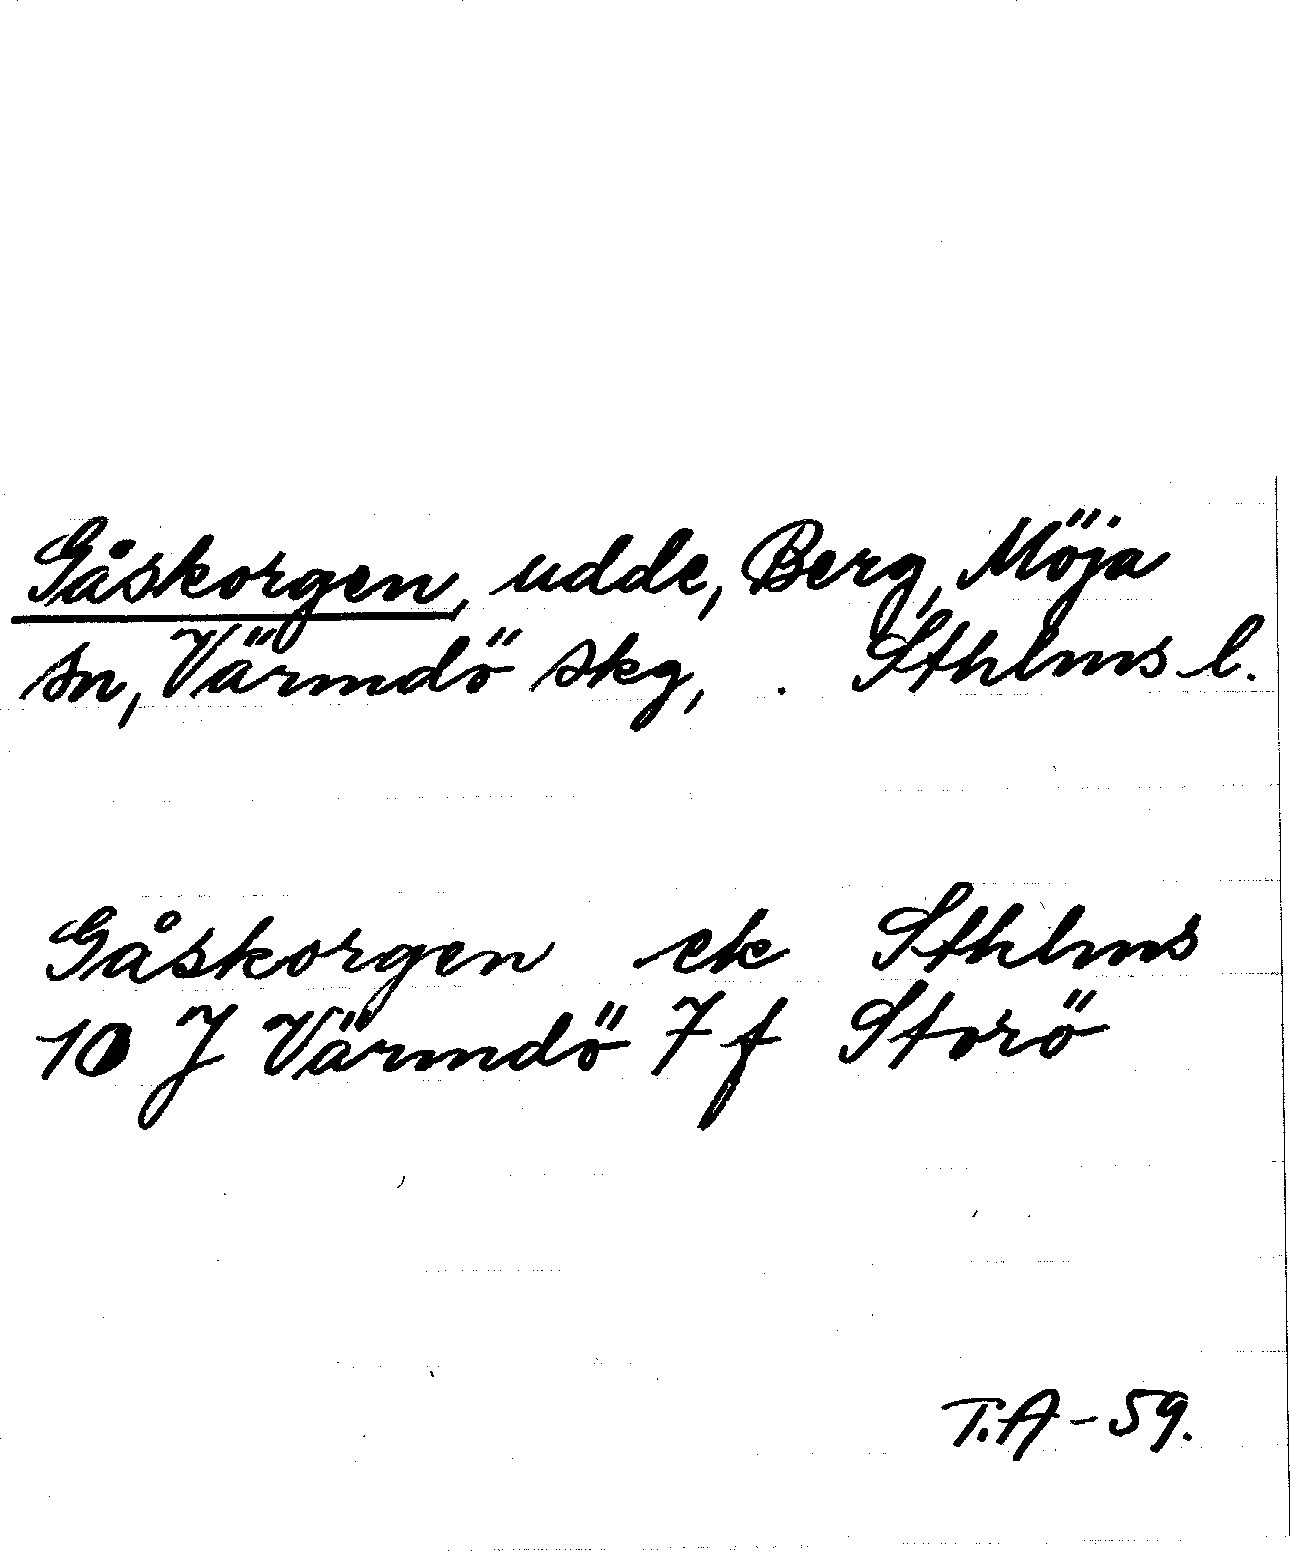 Gåskorgen, udde, Berg, Möja
sn, Värmdö skg, . Sthlms l.
Gåskorgen ek Sthlms
10 J Värmdö 7 f Storö
T.A - 59.